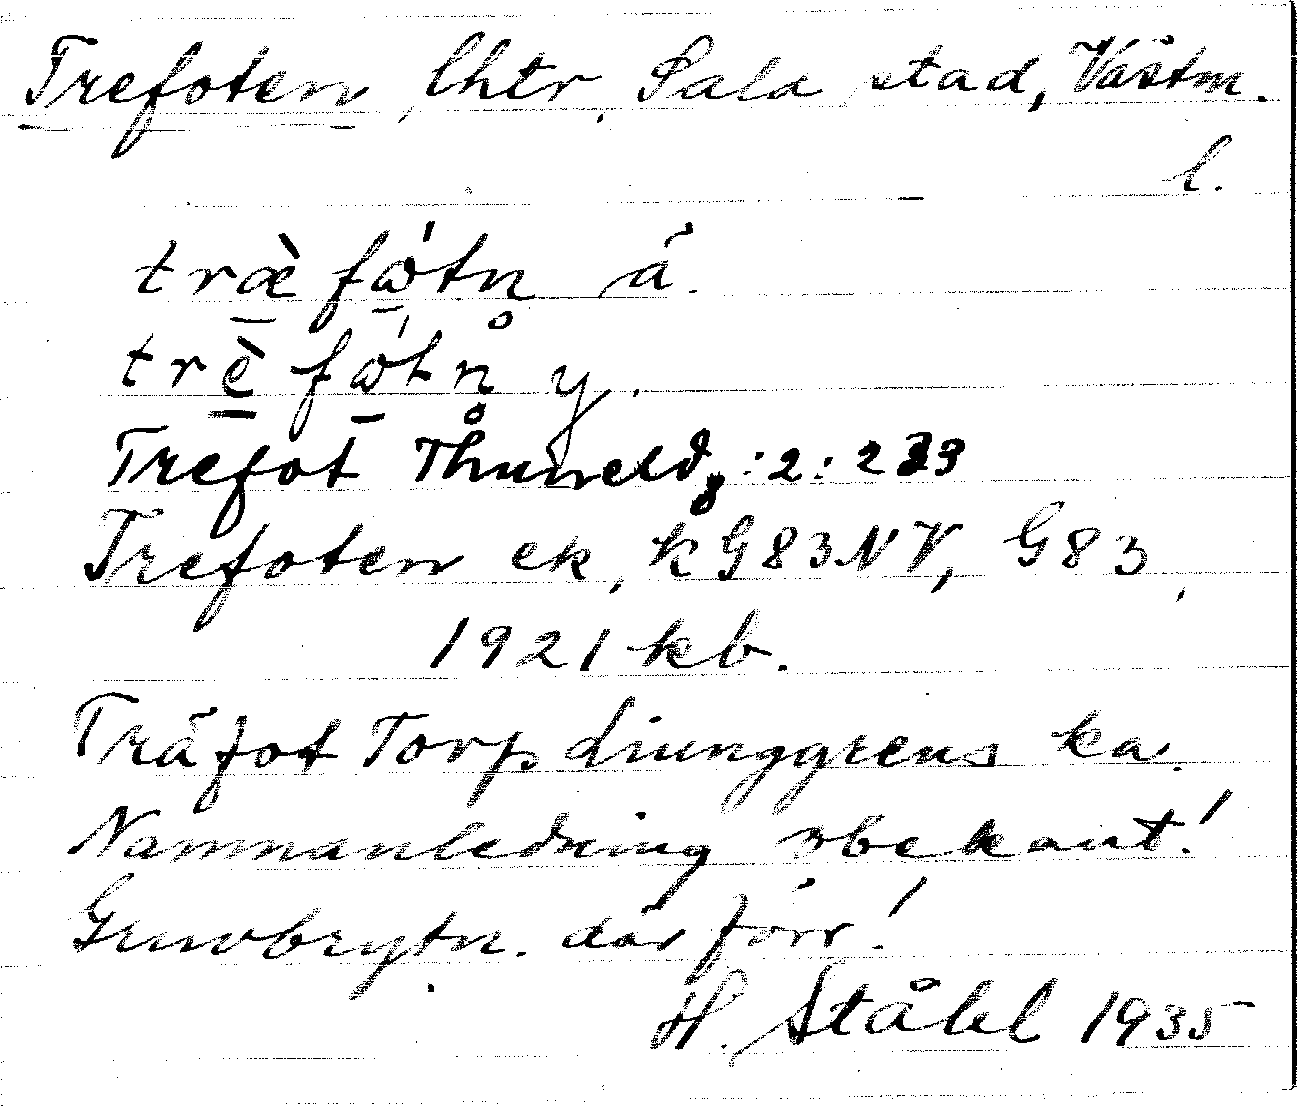 Trefoten, lhtr, Sala stad, Västm.
l.
træ̀fω̍tn ä.
trèfω̍tn̥ y.
Trefot Thuneld, :2:233
Trefoten ek, kG83NV, G83,
1921 kb.
Träfot Torp Liunggrens ka.
Namnanledning obekant!
Gruvbrytn. där förr!
H. Ståhl 1935